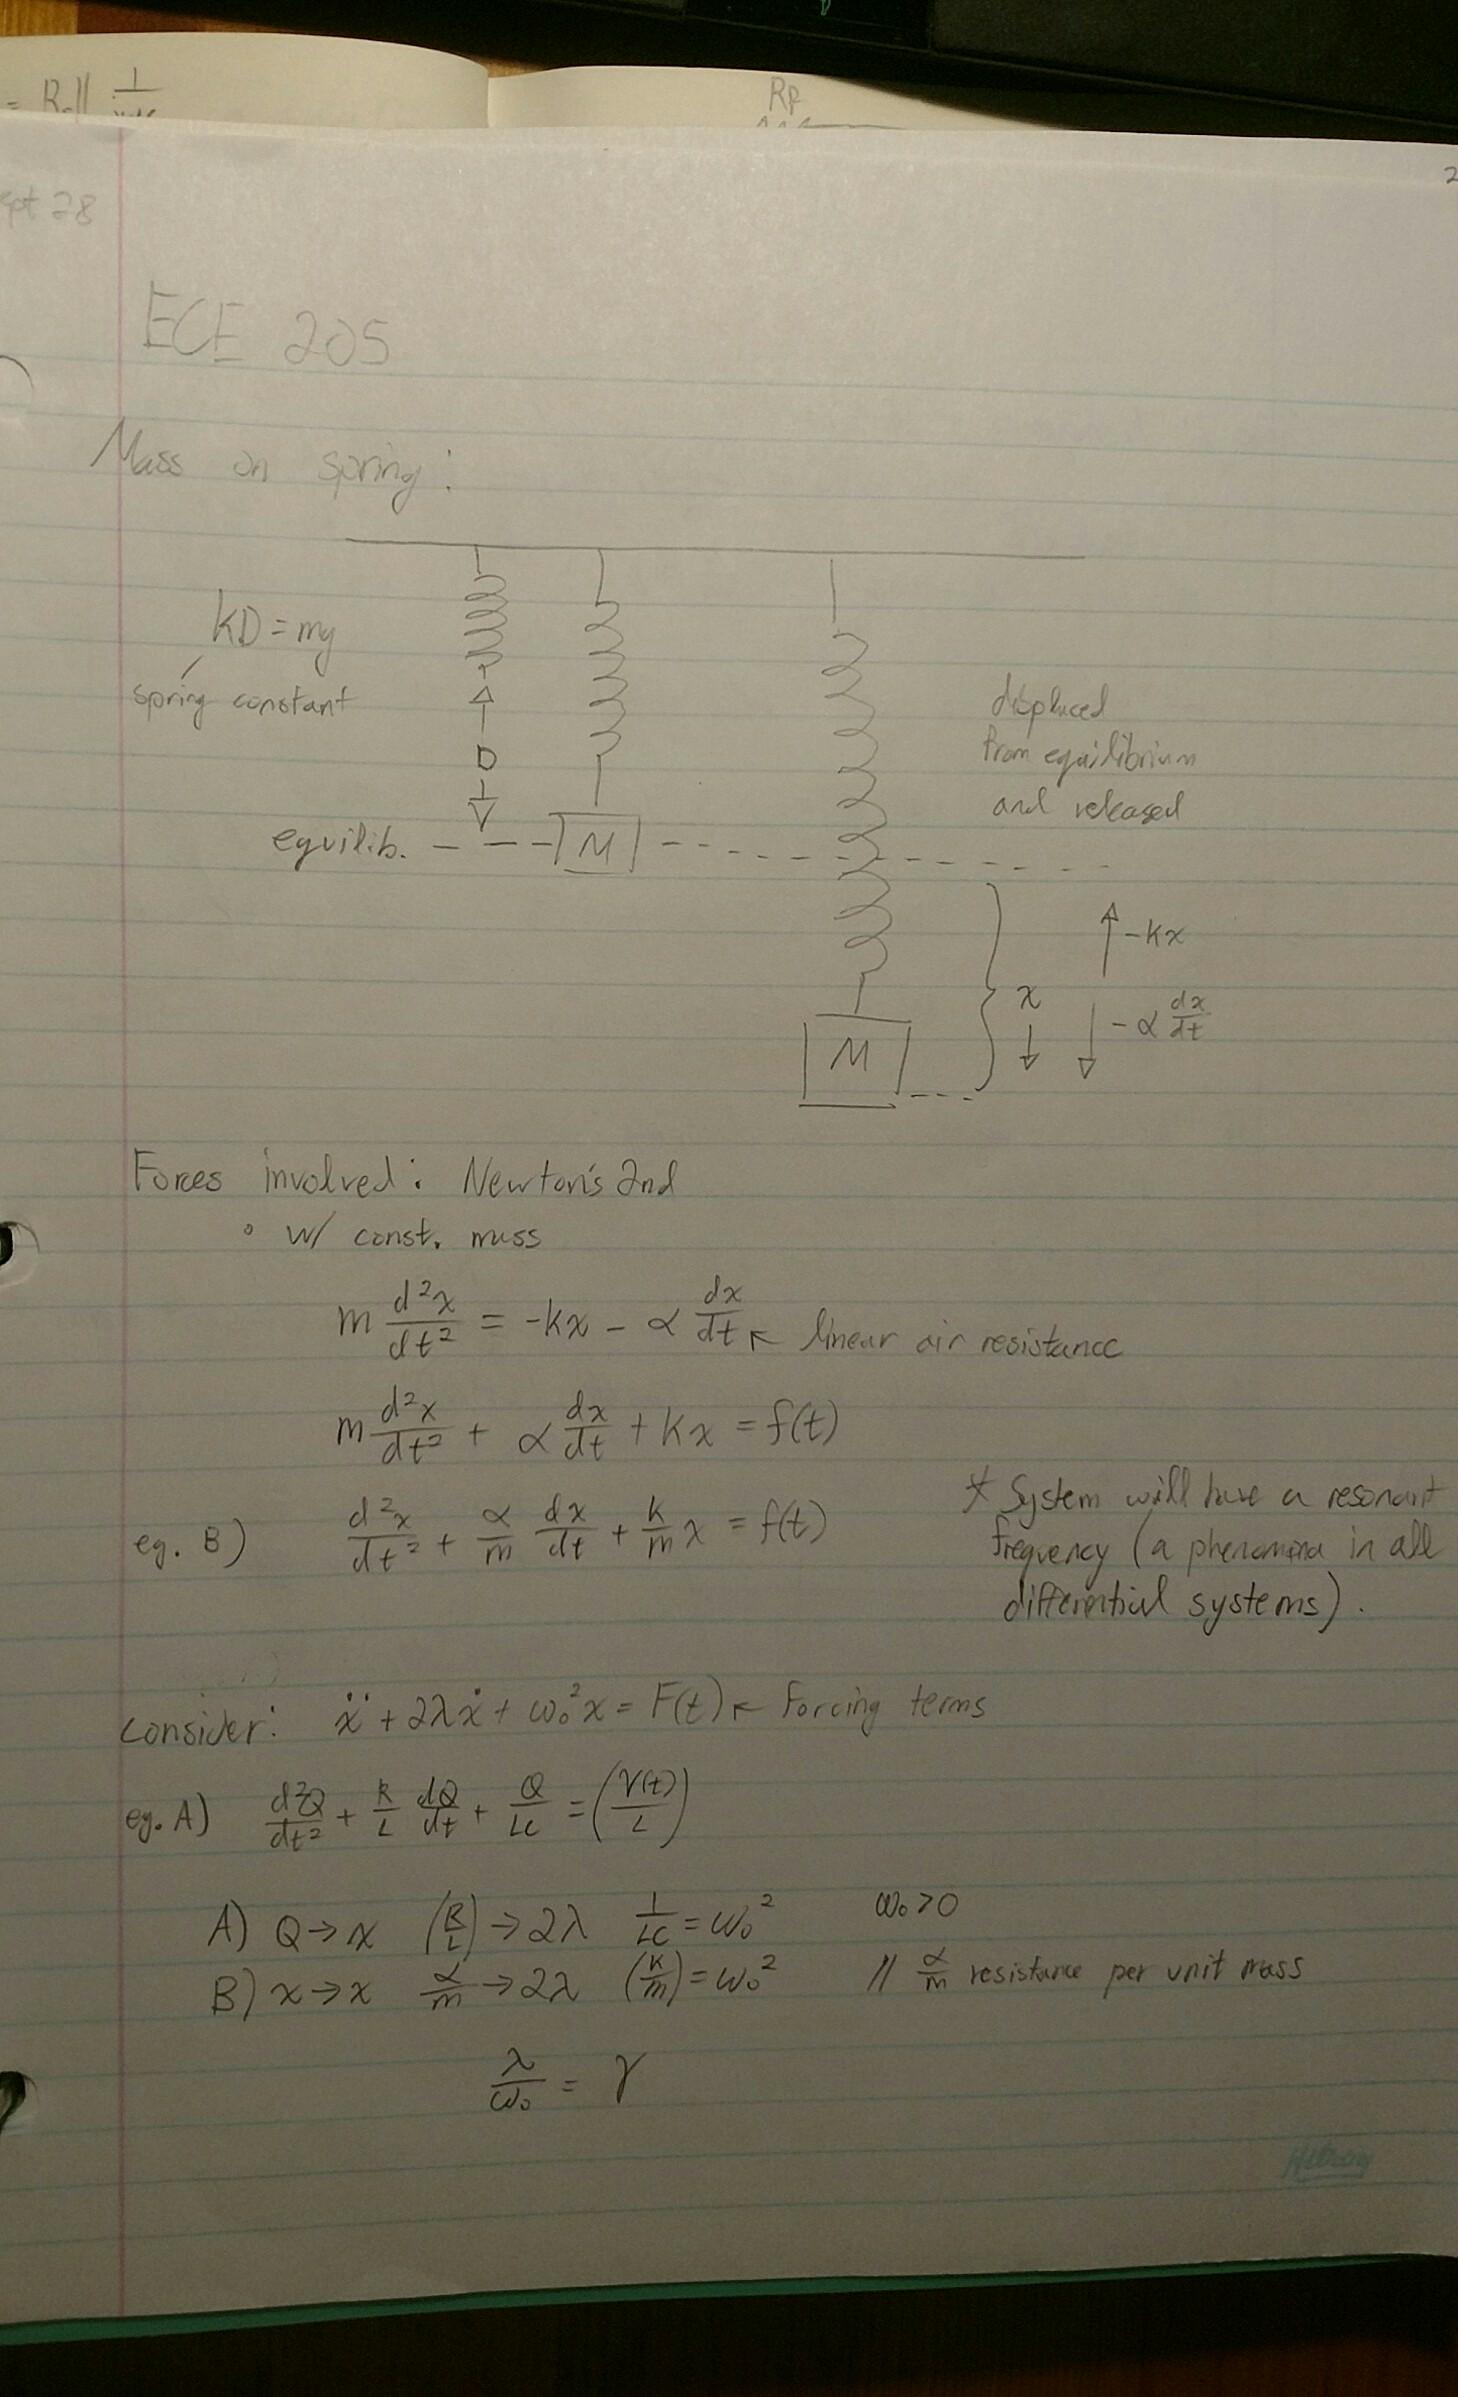 = R₀||
Rp
2
ept 28
ECE 205
Mass on spring:
kD = mg
spring constant
D
equilib.
M
displaced
from equilibrium
and released
-kx
x
-α dx/dt
M
Forces involved: Newton's 2nd
• w/ const. mass
m d²x/dt² = -kx - α dx/dt ↖ linear air resistance
m d²x/dt² + α dx/dt + kx = f(t)
eg. B) d²x/dt² + α/m dx/dt + k/m x = f(t)
* System will have a resonant
frequency (a phenomina in all
differential systems).
Consider: ẍ + 2λẋ + ω₀²x = F(t) ↖ Forcing terms
eg. A) d²Q/dt² + R/L dQ/dt + Q/LC = (V(t)/L)
A) Q → x (R/L) → 2λ 1/LC = ω₀² ω₀ > 0
B) x → x α/m → 2λ (k/m) = ω₀² // α/m resistance per unit mass
λ/ω₀ = γ
Hilroy